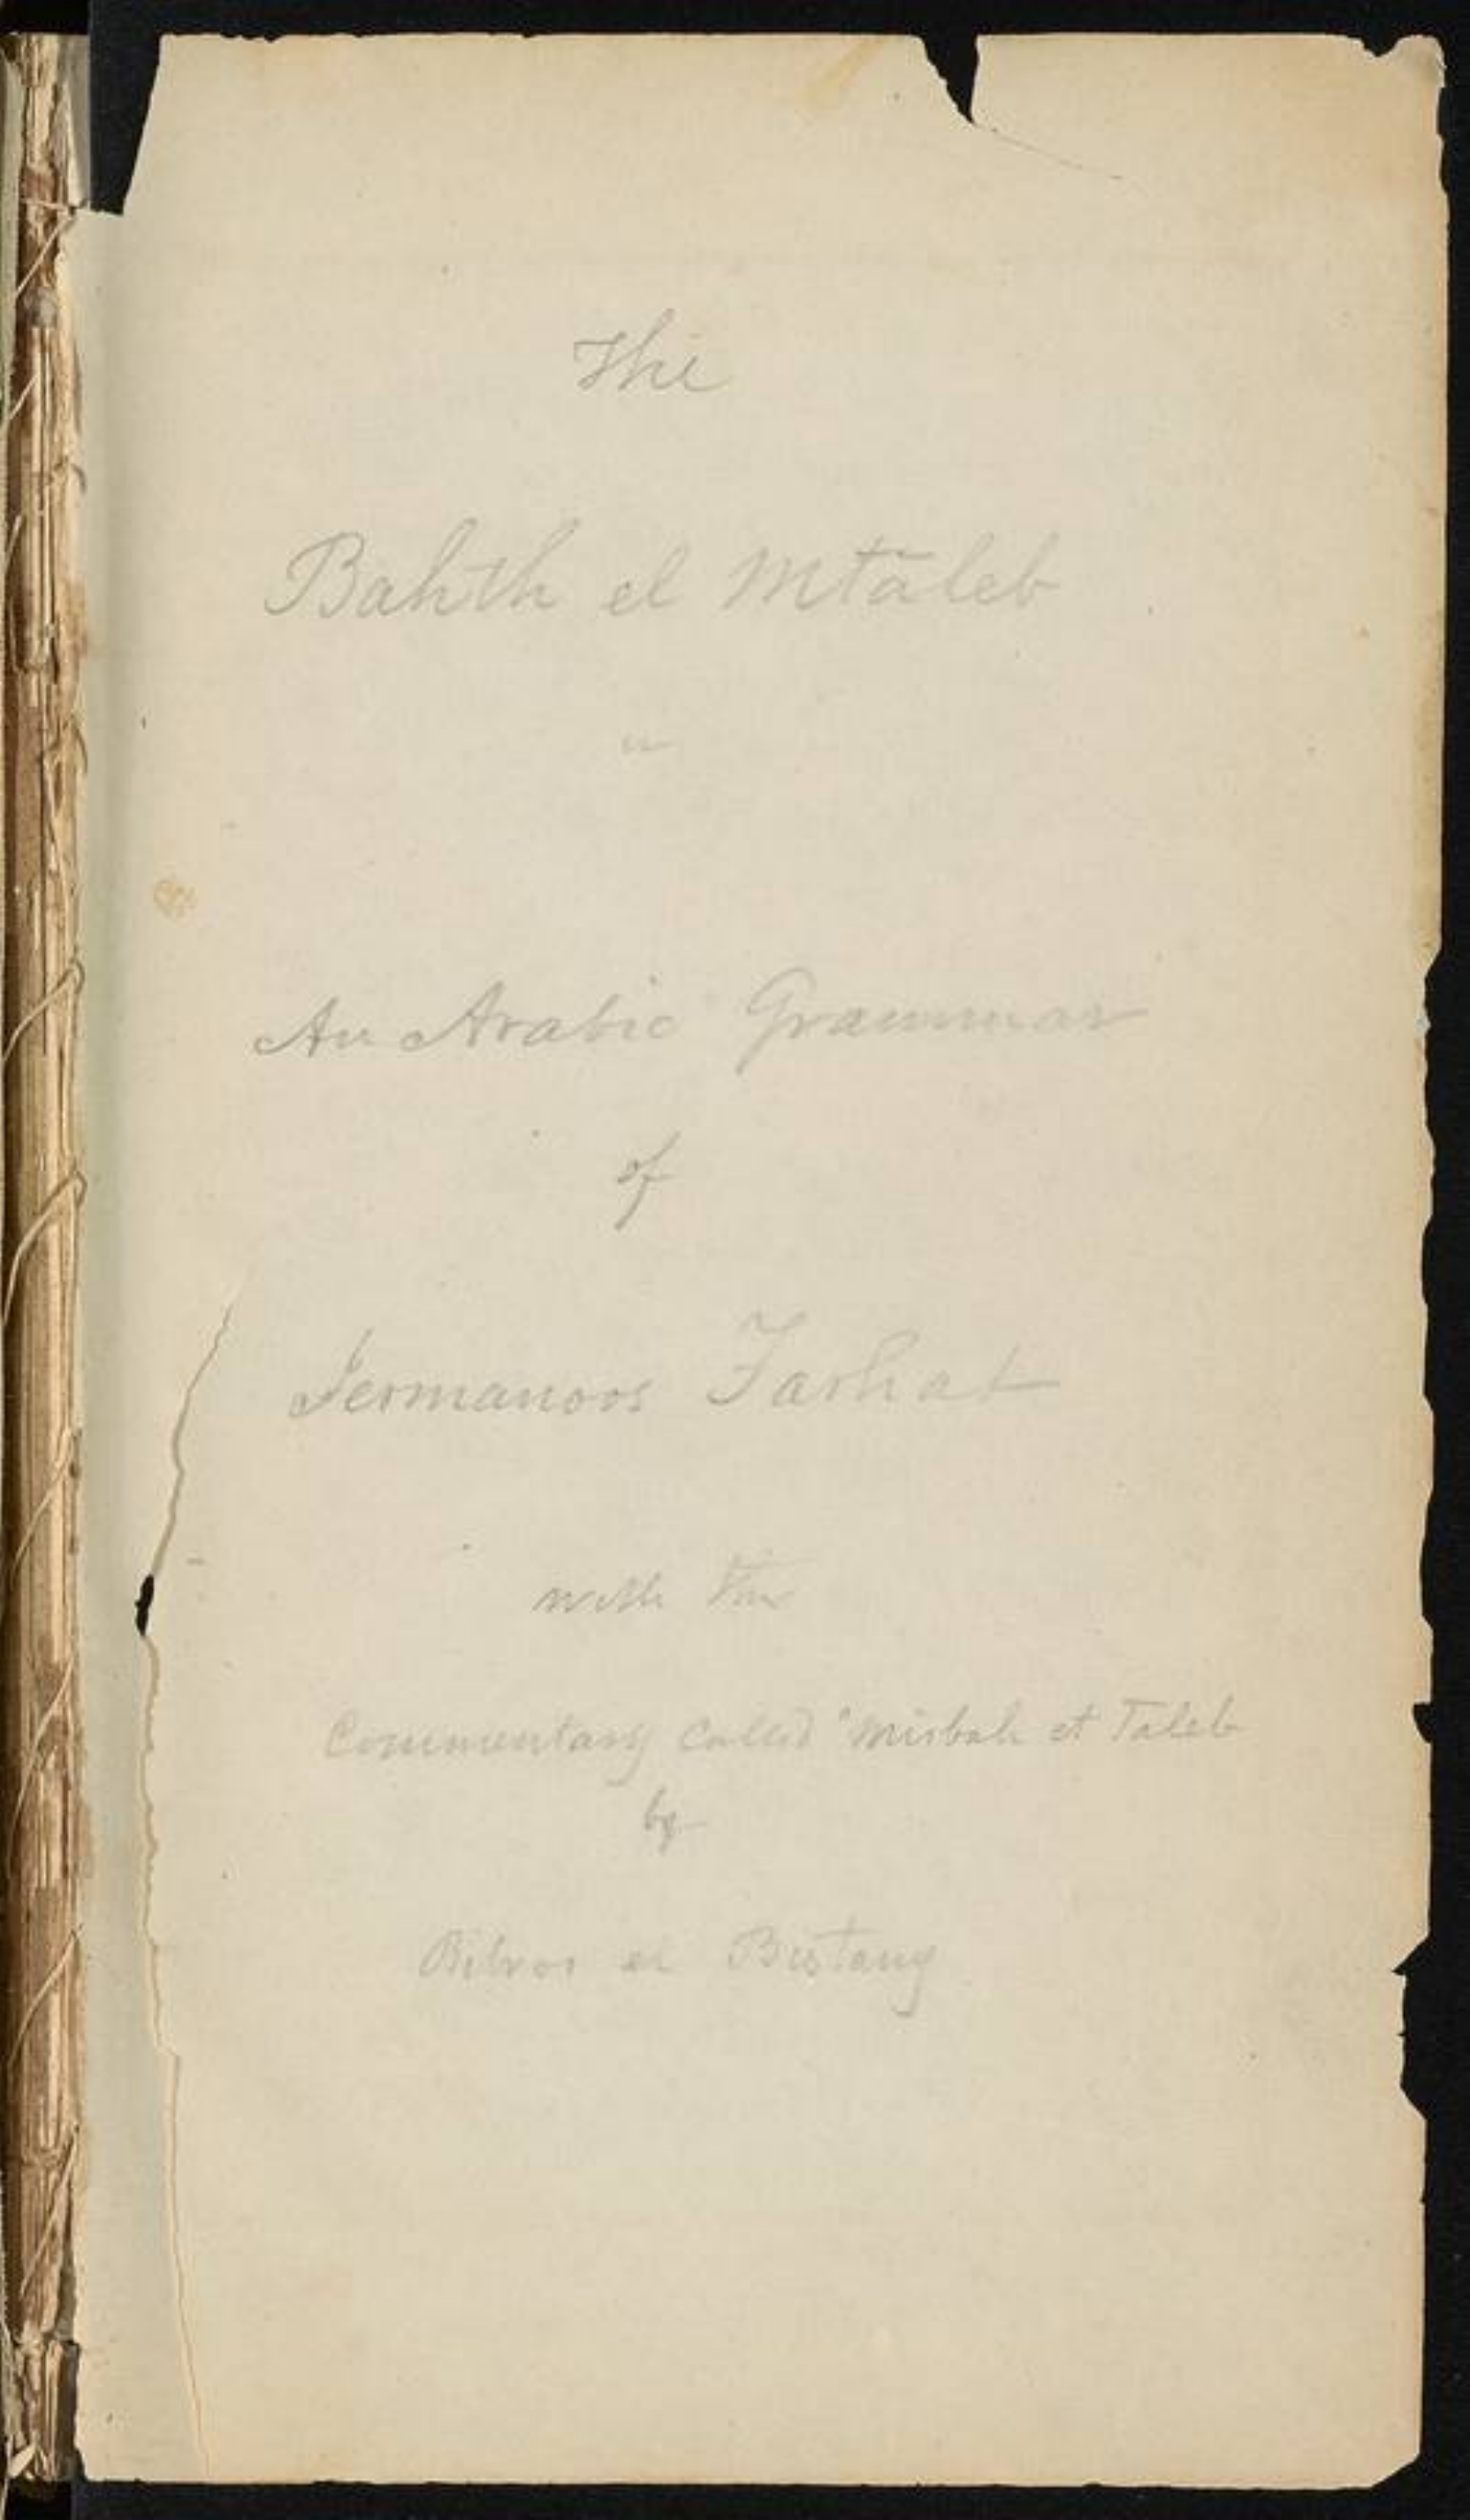 The
Bahth el Mtāleb
An Arabic Grammar
of
Jermanoos Farhat
with the
Commentary called "Misbah et Taleb
by
Bitros el Bistany